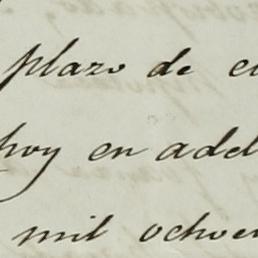 plazo de ci
hoy en adel
mil ochoci